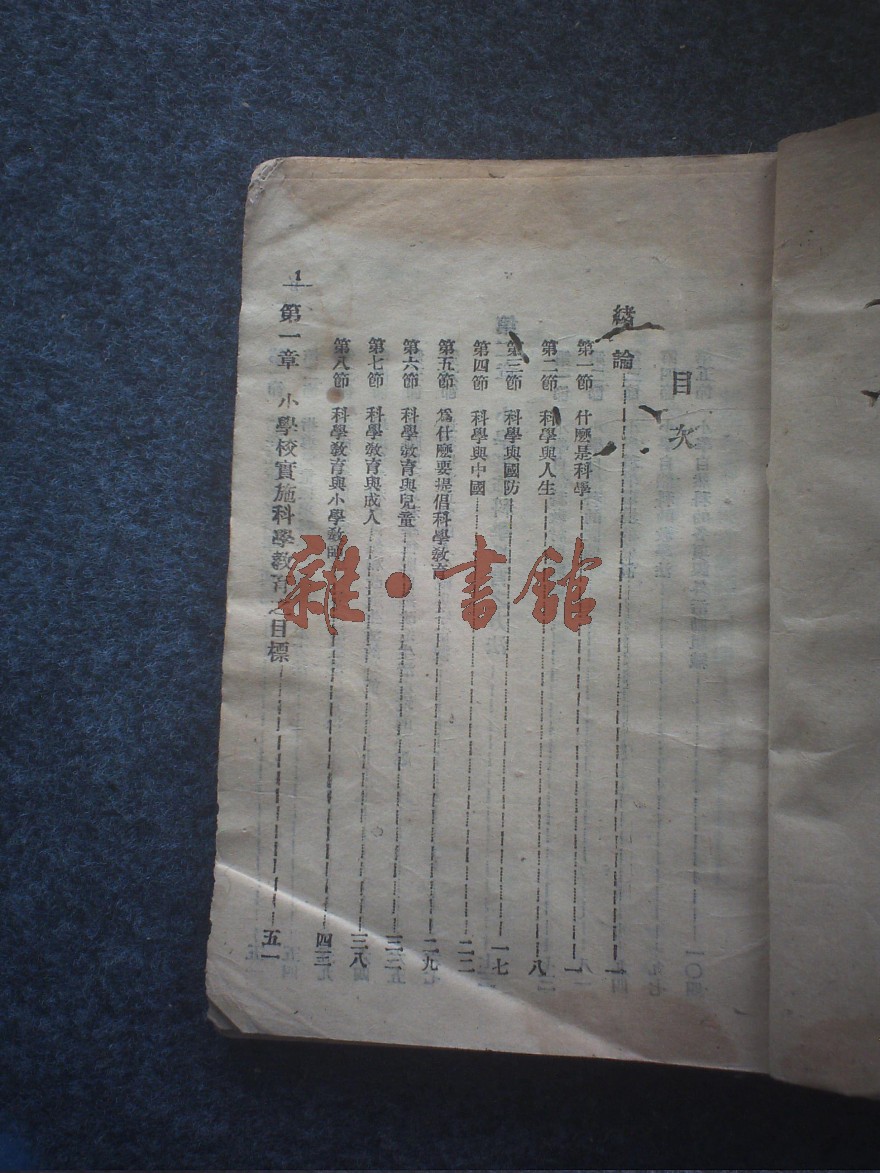 目次
緒論 一
第一節 什麽是科學 一
第二節 科學與人生 八
第三節 科學與國防 一七
第四節 科學與中國 二二
第五節 爲什麽要提倡科學教育 二九
第六節 科學教育與兒童 三二
第七節 科學教育與成人 三八
第八節 科學教育與小學教師 四三
第一章 小學校實施科學教育之目標 五一
1
雜·書館